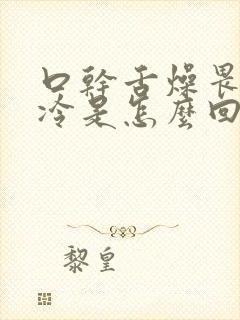 口幹舌燥畏
冷是怎麼回
黎皇